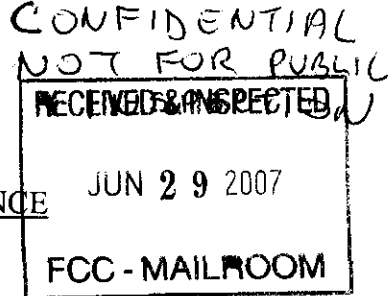 CONFIDENTIAL
NOT FOR PUBLIC
RECEIVED & INSPECTED
JUN 29 2007
NCE
FCC - MAILROOM